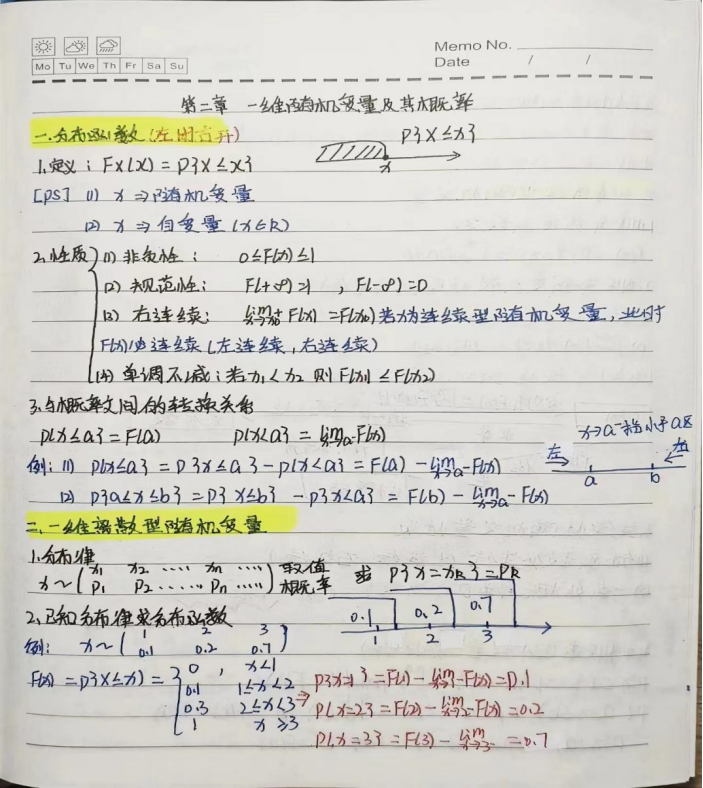 Memo No.
Mo Tu We Th Fr Sa Su
Date / /
第二章 一维随机变量及其概率
一.分布函数(左闭右开)
P{X≤x}
x
1.定义：Fx(x)=P{X≤x}
[PS] (1) x ⇒随机变量
(2) x ⇒自变量(x∈R)
2.性质 (1) 非负性： 0≤F(x)≤1
(2) 规范性： F(+∞)=1 , F(-∞)=0
(3) 右连续： lim F(x) =F(x₀)若x为连续型随机变量，此时
F(x)必连续(左连续，右连续)
(4) 单调不减：若x₁<x₂ 则F(x₁)≤F(x₂)
3.与概率之间的转换关系
P{x≤a}=F(a) P{x<a}=lim x→a⁻ F(x)
x→a⁻指小于a区
左 a b 右
例：(1) P{x=a}=P{x≤a}-P{x<a}=F(a)-lim x→a⁻ F(x)
(2) P{a≤x≤b}=P{x≤b}-P{x<a}=F(b)-lim x→a⁻ F(x)
二.一维离散型随机变量
1.分布律
x~( x₁ x₂ ····· xn ···· ) 取值
P₁ P₂ ····· Pn ····· 概率
求 P{x=xk}=Pk
0.1 0.2 0.7
1 2 3
2.已知分布律求分布函数
例： x~( 1 2 3 )
0.1 0.2 0.7
F(x)=P{X≤x}= { 0 , x<1
0.1 1≤x<2
0.3 2≤x<3
1 x≥3
⇒ P{x=1}=F(1)-lim x→1⁻ F(x)=0.1
P{x=2}=F(2)-lim x→2⁻ F(x)=0.2
P{x=3}=F(3)-lim x→3⁻ =0.7